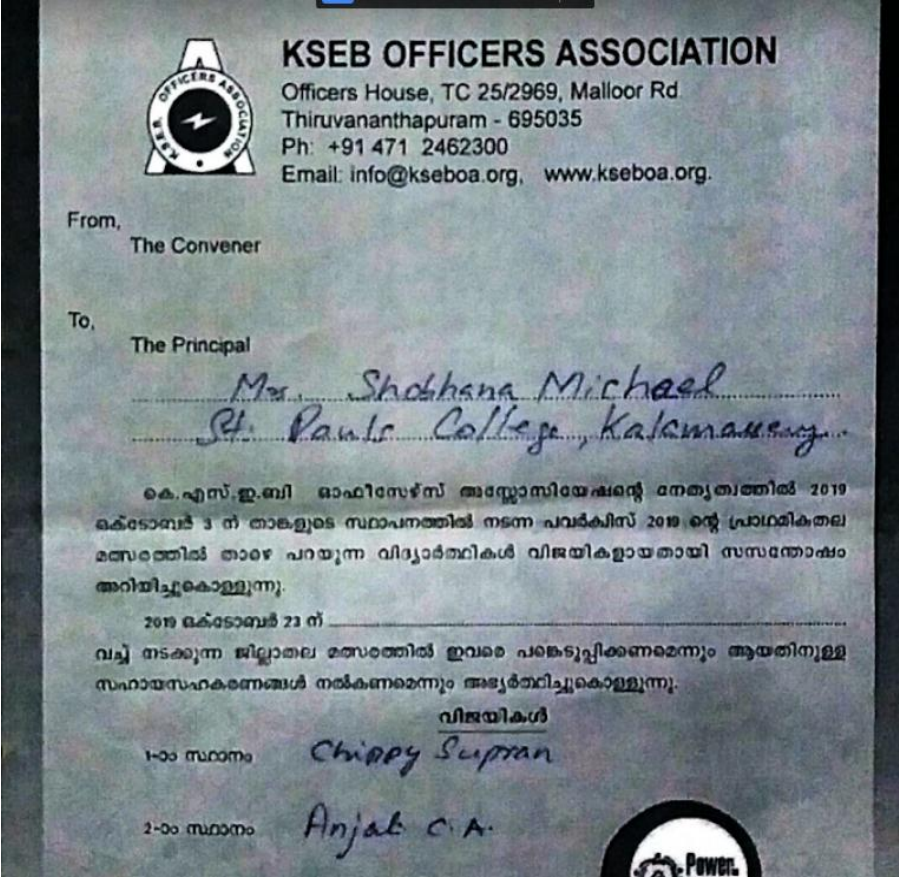 K.S.E.B. OFFICERS ASSOCIATION
KSEB OFFICERS ASSOCIATION
Officers House, TC 25/2969, Malloor Rd
Thiruvananthapuram - 695035
Ph: +91 471 2462300
Email: info@kseboa.org, www.kseboa.org.
From,
The Convener
To,
The Principal
Mrs. Shobhana Michael
St. Pauls College, Kalamassery
കെ.എസ്.ഇ.ബി ഓഫീസേഴ്സ് അസ്സോസിയേഷന്റെ നേതൃത്വത്തിൽ 2019
ഒക്ടോബർ 3 ന് താങ്കളുടെ സ്ഥാപനത്തിൽ നടന്ന പവർക്വിസ് 2019 ന്റെ പ്രാഥമികതല
മത്സരത്തിൽ താഴെ പറയുന്ന വിദ്യാർത്ഥികൾ വിജയികളായതായി സസന്തോഷം
അറിയിച്ചുകൊള്ളുന്നു.
2019 ഒക്ടോബർ 23 ന്
വച്ച് നടക്കുന്ന ജില്ലാതല മത്സരത്തിൽ ഇവരെ പങ്കെടുപ്പിക്കണമെന്നും ആയതിനുള്ള
സഹായസഹകരണങ്ങൾ നൽകണമെന്നും അഭ്യർത്ഥിച്ചുകൊള്ളുന്നു.
വിജയികൾ
1-ാം സ്ഥാനം Chippy Supran
2-ാം സ്ഥാനം Anjali C.A.
Power